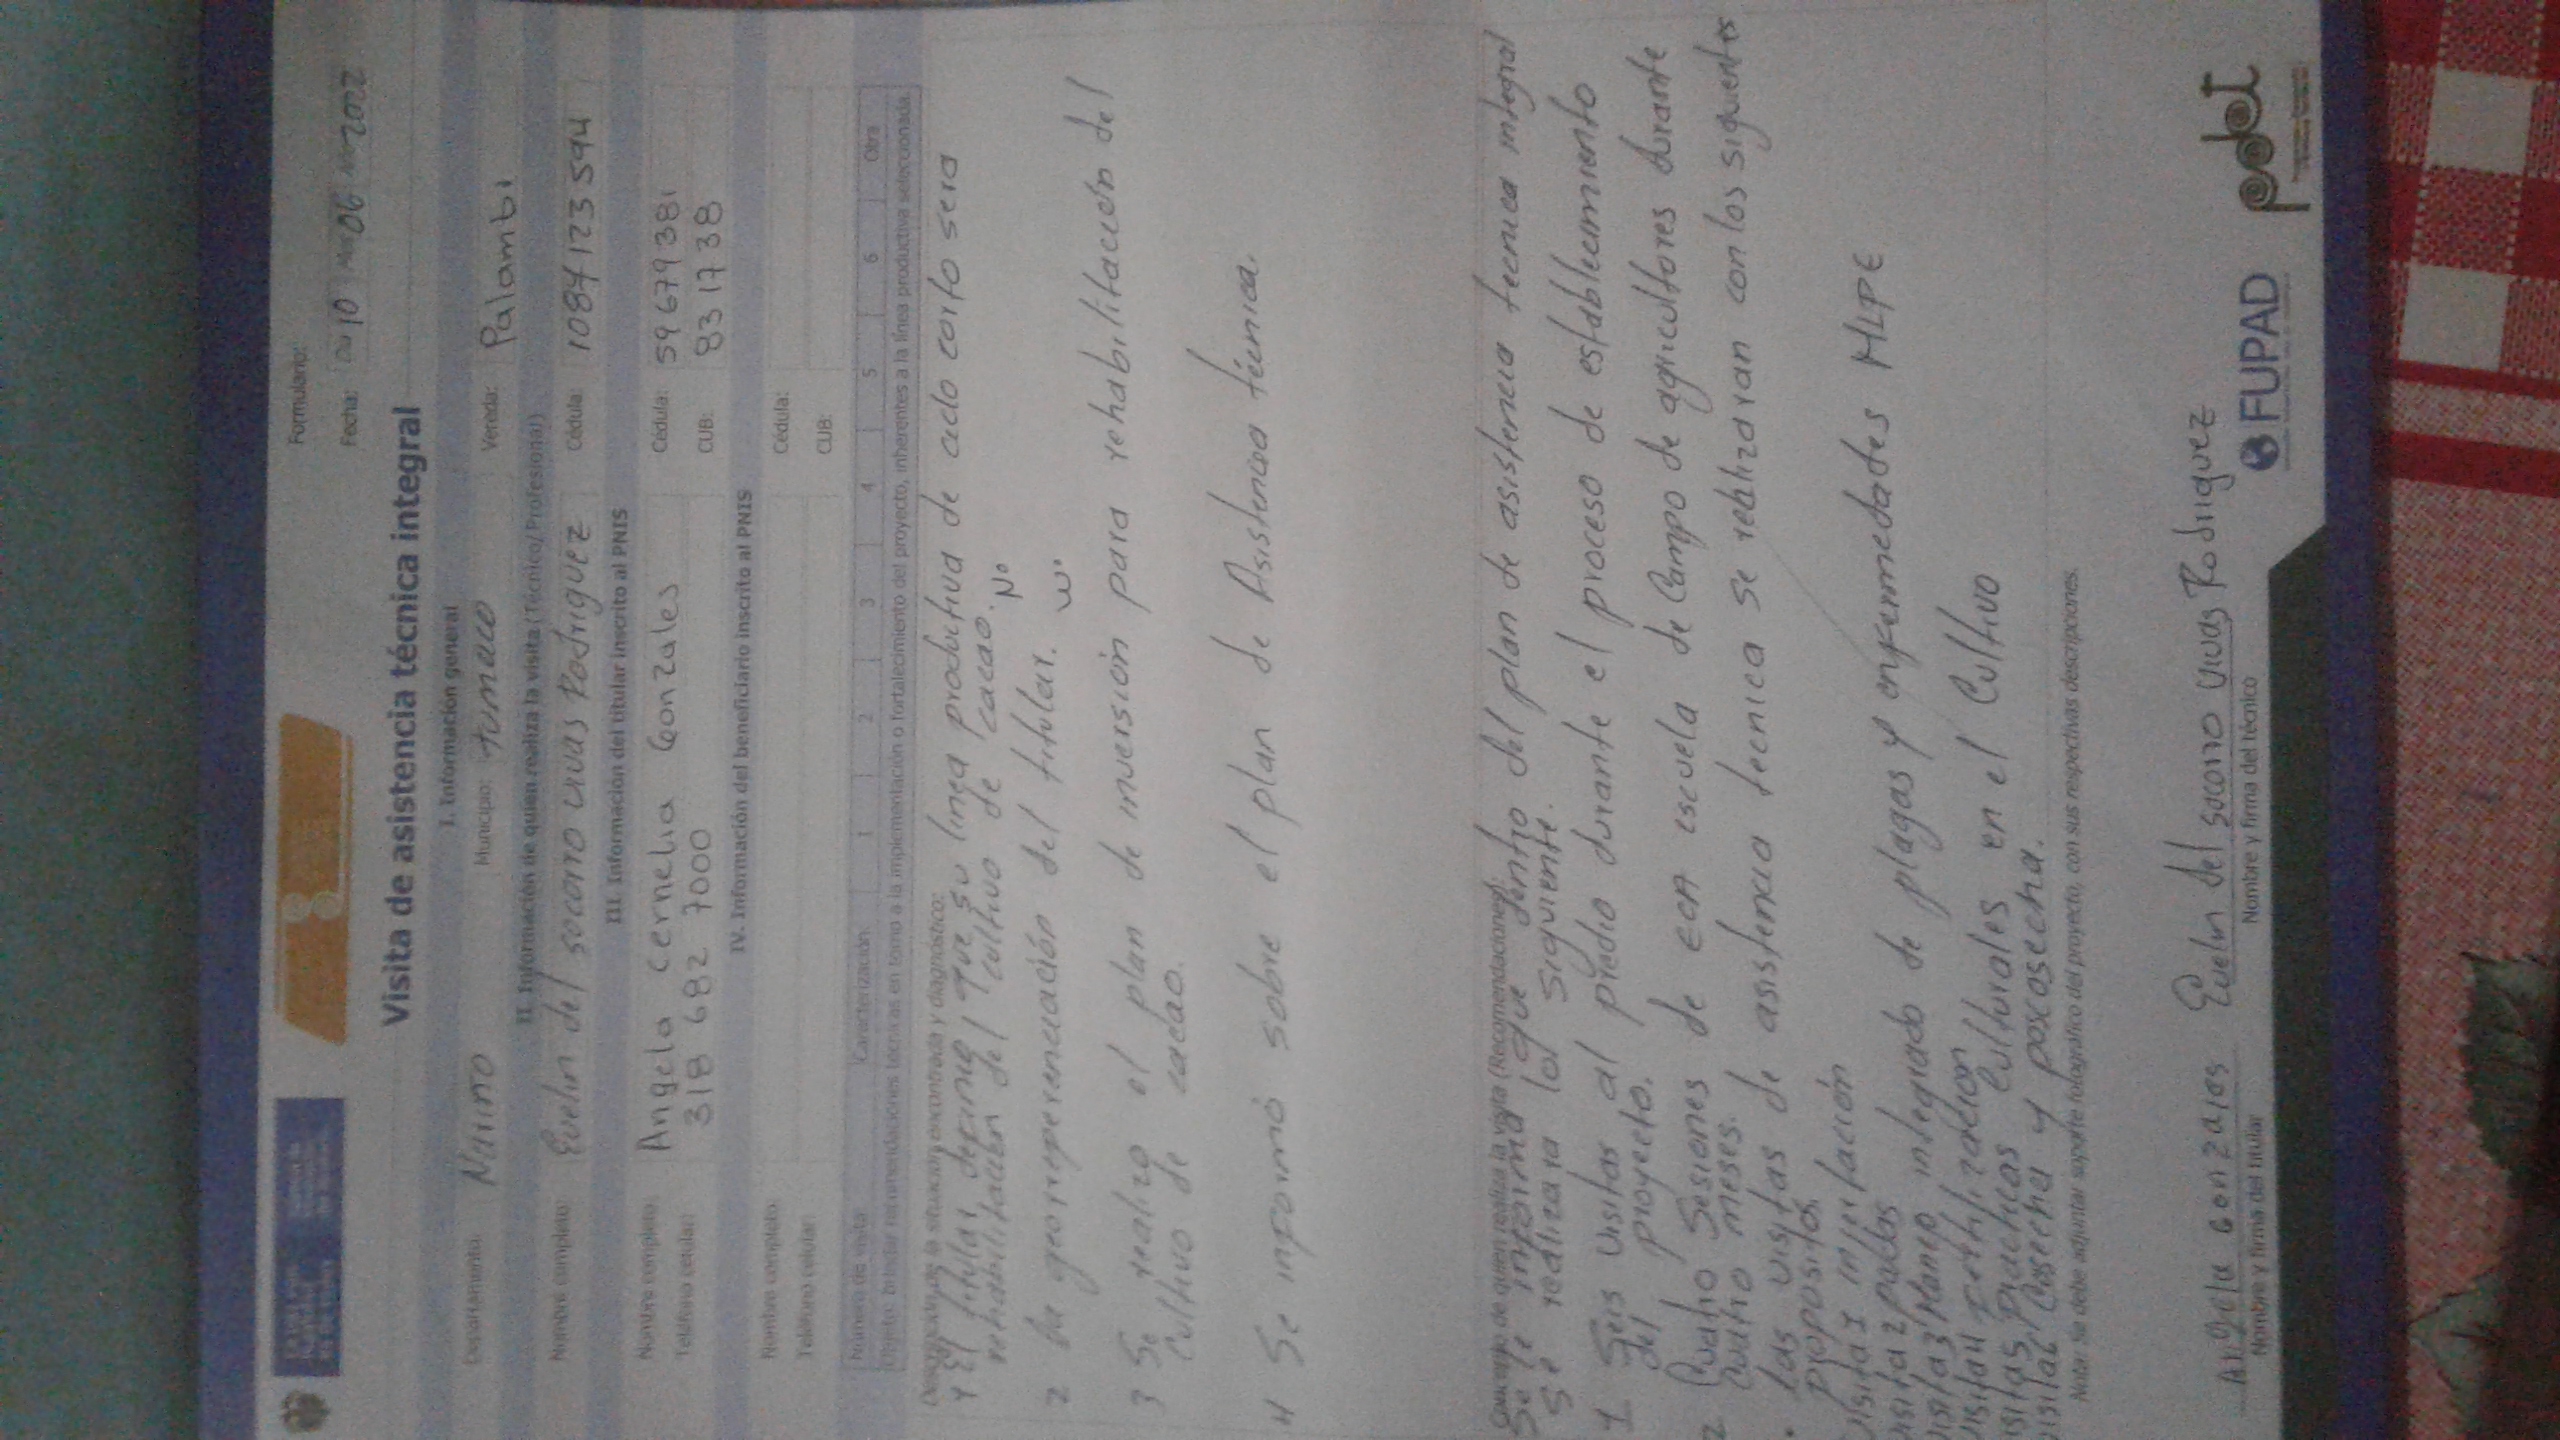 Formulario:
Fecha: Día 10 Mes 06 Año 2022
Visita de asistencia técnica integral
I. Información general
Departamento: Nariño Municipio: tumaco Vereda: Palambi
II. Información de quien realiza la visita (Técnico/Profesional)
Nombre completo: Evelin del socorro vivas Rodriguez Cédula: 1087123594
III. Información del titular inscrito al PNIS
Nombre completo: Angela cernelia Gonzales Cédula: 59679381
Teléfono celular: 318 682 7000 CUB: 831738
IV. Información del beneficiario inscrito al PNIS
Nombre completo: Cédula:
Teléfono celular: CUB:
Número de visita: Caracterización: 1 2 3 4 5 6 Otra
Objeto: Brindar recomendaciones técnicas en torno a la implementación o fortalecimiento del proyecto, inherentes a la línea productiva seleccionada.
Descripción de la situación encontrada y diagnóstico:
1 El titular define que su linea productiva de ciclo corto sera
rehabilitación del cultivo de cacao. N°
2 La georreferenciación del titular. W°
3 Se realizo el plan de inversión para rehabilitación del
Cultivo de cacao.
4 Se informó sobre el plan de Asistencia técnica.
Concepto de quien realiza la visita (Recomendaciones):
Se le informa que dentro del plan de asistencia tecnica integral
Se realizara lo siguiente.
1 Seis visitas al predio durante el proceso de establecimiento
del proyecto.
2 Cuatro Sesiones de ECA escuela de Campo de agricultores durante
cuatro meses.
• las visitas de asistencia tecnica se realizaran con los siguientes
propositos
visita 1
visita 2 podas
visita 3 Manejo integrado de plagas y enfermedades MIPE
visita 4 Fertilización
visita 5 Practicas Culturales en el Cultivo
visita 6 Cosecha y poscosecha.
Nota: Se debe adjuntar soporte fotográfico del proyecto, con sus respectivas descripciones.
Angela Gonzales Evelin del socorro vivas Rodriguez
Nombre y firma del titular Nombre y firma del técnico
FUPAD pdet